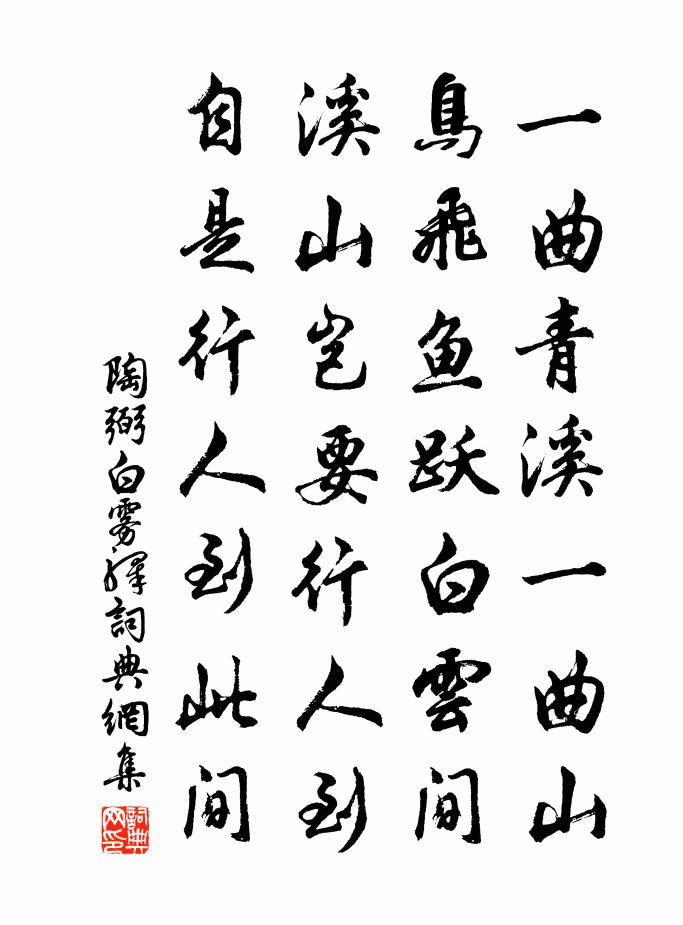 一曲青溪一曲山
鳥飛魚跃白雲间
溪山岂要行人到
自是行人到此间
陶弼白雾驿詞典網集
詞典网印